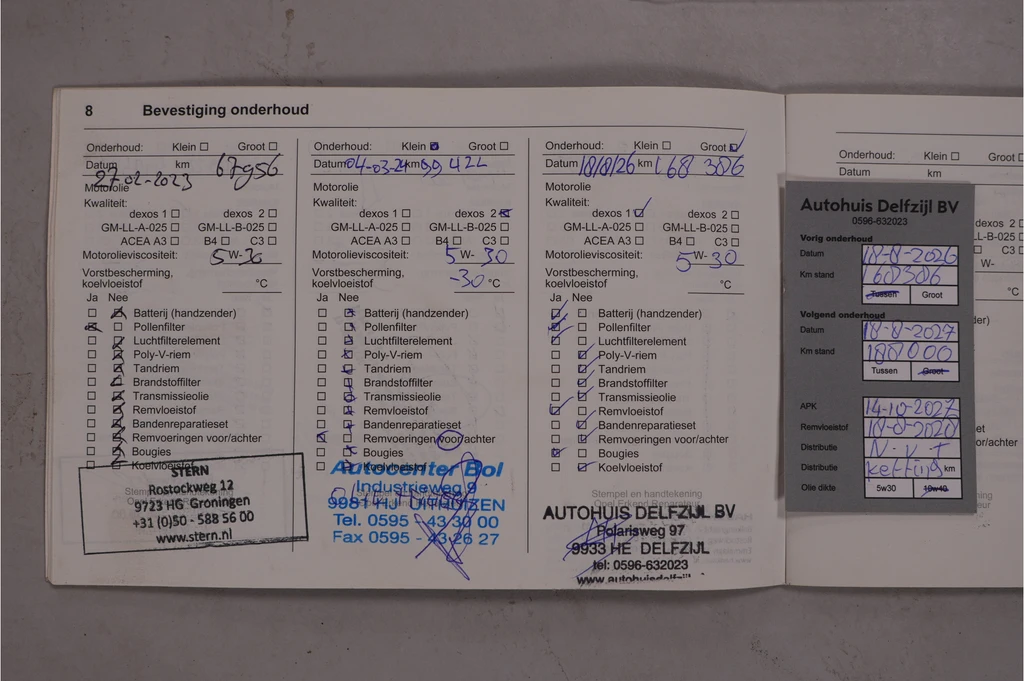 8 Bevestiging onderhoud
Onderhoud: Klein ☐ Groot ☐
Datum km 67956
27-02-2023
Motorolie
Kwaliteit:
dexos 1 ☐ dexos 2 ☐
GM-LL-A-025 ☐ GM-LL-B-025 ☐
ACEA A3 ☐ B4 ☐ C3 ☐
Motorolieviscositeit: 5 W- 30
Vorstbescherming,
koelvloeistof °C
Ja Nee
Batterij (handzender)
Pollenfilter
Luchtfilterelement
Poly-V-riem
Tandriem
Brandstoffilter
Transmissieolie
Remvloeistof
Bandenreparatieset
Remvoeringen voor/achter
Bougies
Koelvloeistof
STERN
Rostockweg 12
9723 HG Groningen
+31 (0)50 - 588 56 00
www.stern.nl
Onderhoud: Klein ☒ Groot ☐
Datum 04-03-24 km 99 422
Motorolie
Kwaliteit:
dexos 1 ☐ dexos 2 ☒
GM-LL-A-025 ☐ GM-LL-B-025 ☐
ACEA A3 ☐ B4 ☐ C3 ☐
Motorolieviscositeit: 5 W- 30
Vorstbescherming,
koelvloeistof -30 °C
Ja Nee
Batterij (handzender)
Pollenfilter
Luchtfilterelement
Poly-V-riem
Tandriem
Brandstoffilter
Transmissieolie
Remvloeistof
Bandenreparatieset
Remvoeringen voor/achter
Bougies
Koelvloeistof
Autocenter Bol
Industrieweg 9
9981 HJ UITHUIZEN
Tel. 0595 - 43 30 00
Fax 0595 - 43 26 27
Onderhoud: Klein ☐ Groot ☑
Datum 18/8/26 km 168 306
Motorolie
Kwaliteit:
dexos 1 ☑ dexos 2 ☐
GM-LL-A-025 ☐ GM-LL-B-025 ☐
ACEA A3 ☐ B4 ☐ C3 ☐
Motorolieviscositeit: 5 W- 30
Vorstbescherming,
koelvloeistof °C
Ja Nee
Batterij (handzender)
Pollenfilter
Luchtfilterelement
Poly-V-riem
Tandriem
Brandstoffilter
Transmissieolie
Remvloeistof
Bandenreparatieset
Remvoeringen voor/achter
Bougies
Koelvloeistof
Stempel en handtekening
Opel Erkend Reparateur
AUTOHUIS DELFZIJL BV
Polarisweg 97
9933 HE DELFZIJL
tel: 0596-632023
Onderhoud: Klein ☐ Groot ☐
Datum km
Autohuis Delfzijl BV
0596-632023
Vorig onderhoud
Datum 18-8-2026
Km stand 168306
Tussen Groot
Volgend onderhoud
Datum 18-8-2027
Km stand 188000
Tussen Groot
APK 14-10-2027
Remvloeistof 18-8-2028
Distributie N.V.T
Distributie ketting km
Olie dikte 5w30 10w40
dexos 2 ☐
LL-B-025 ☐
C3 ☐
W-
°C